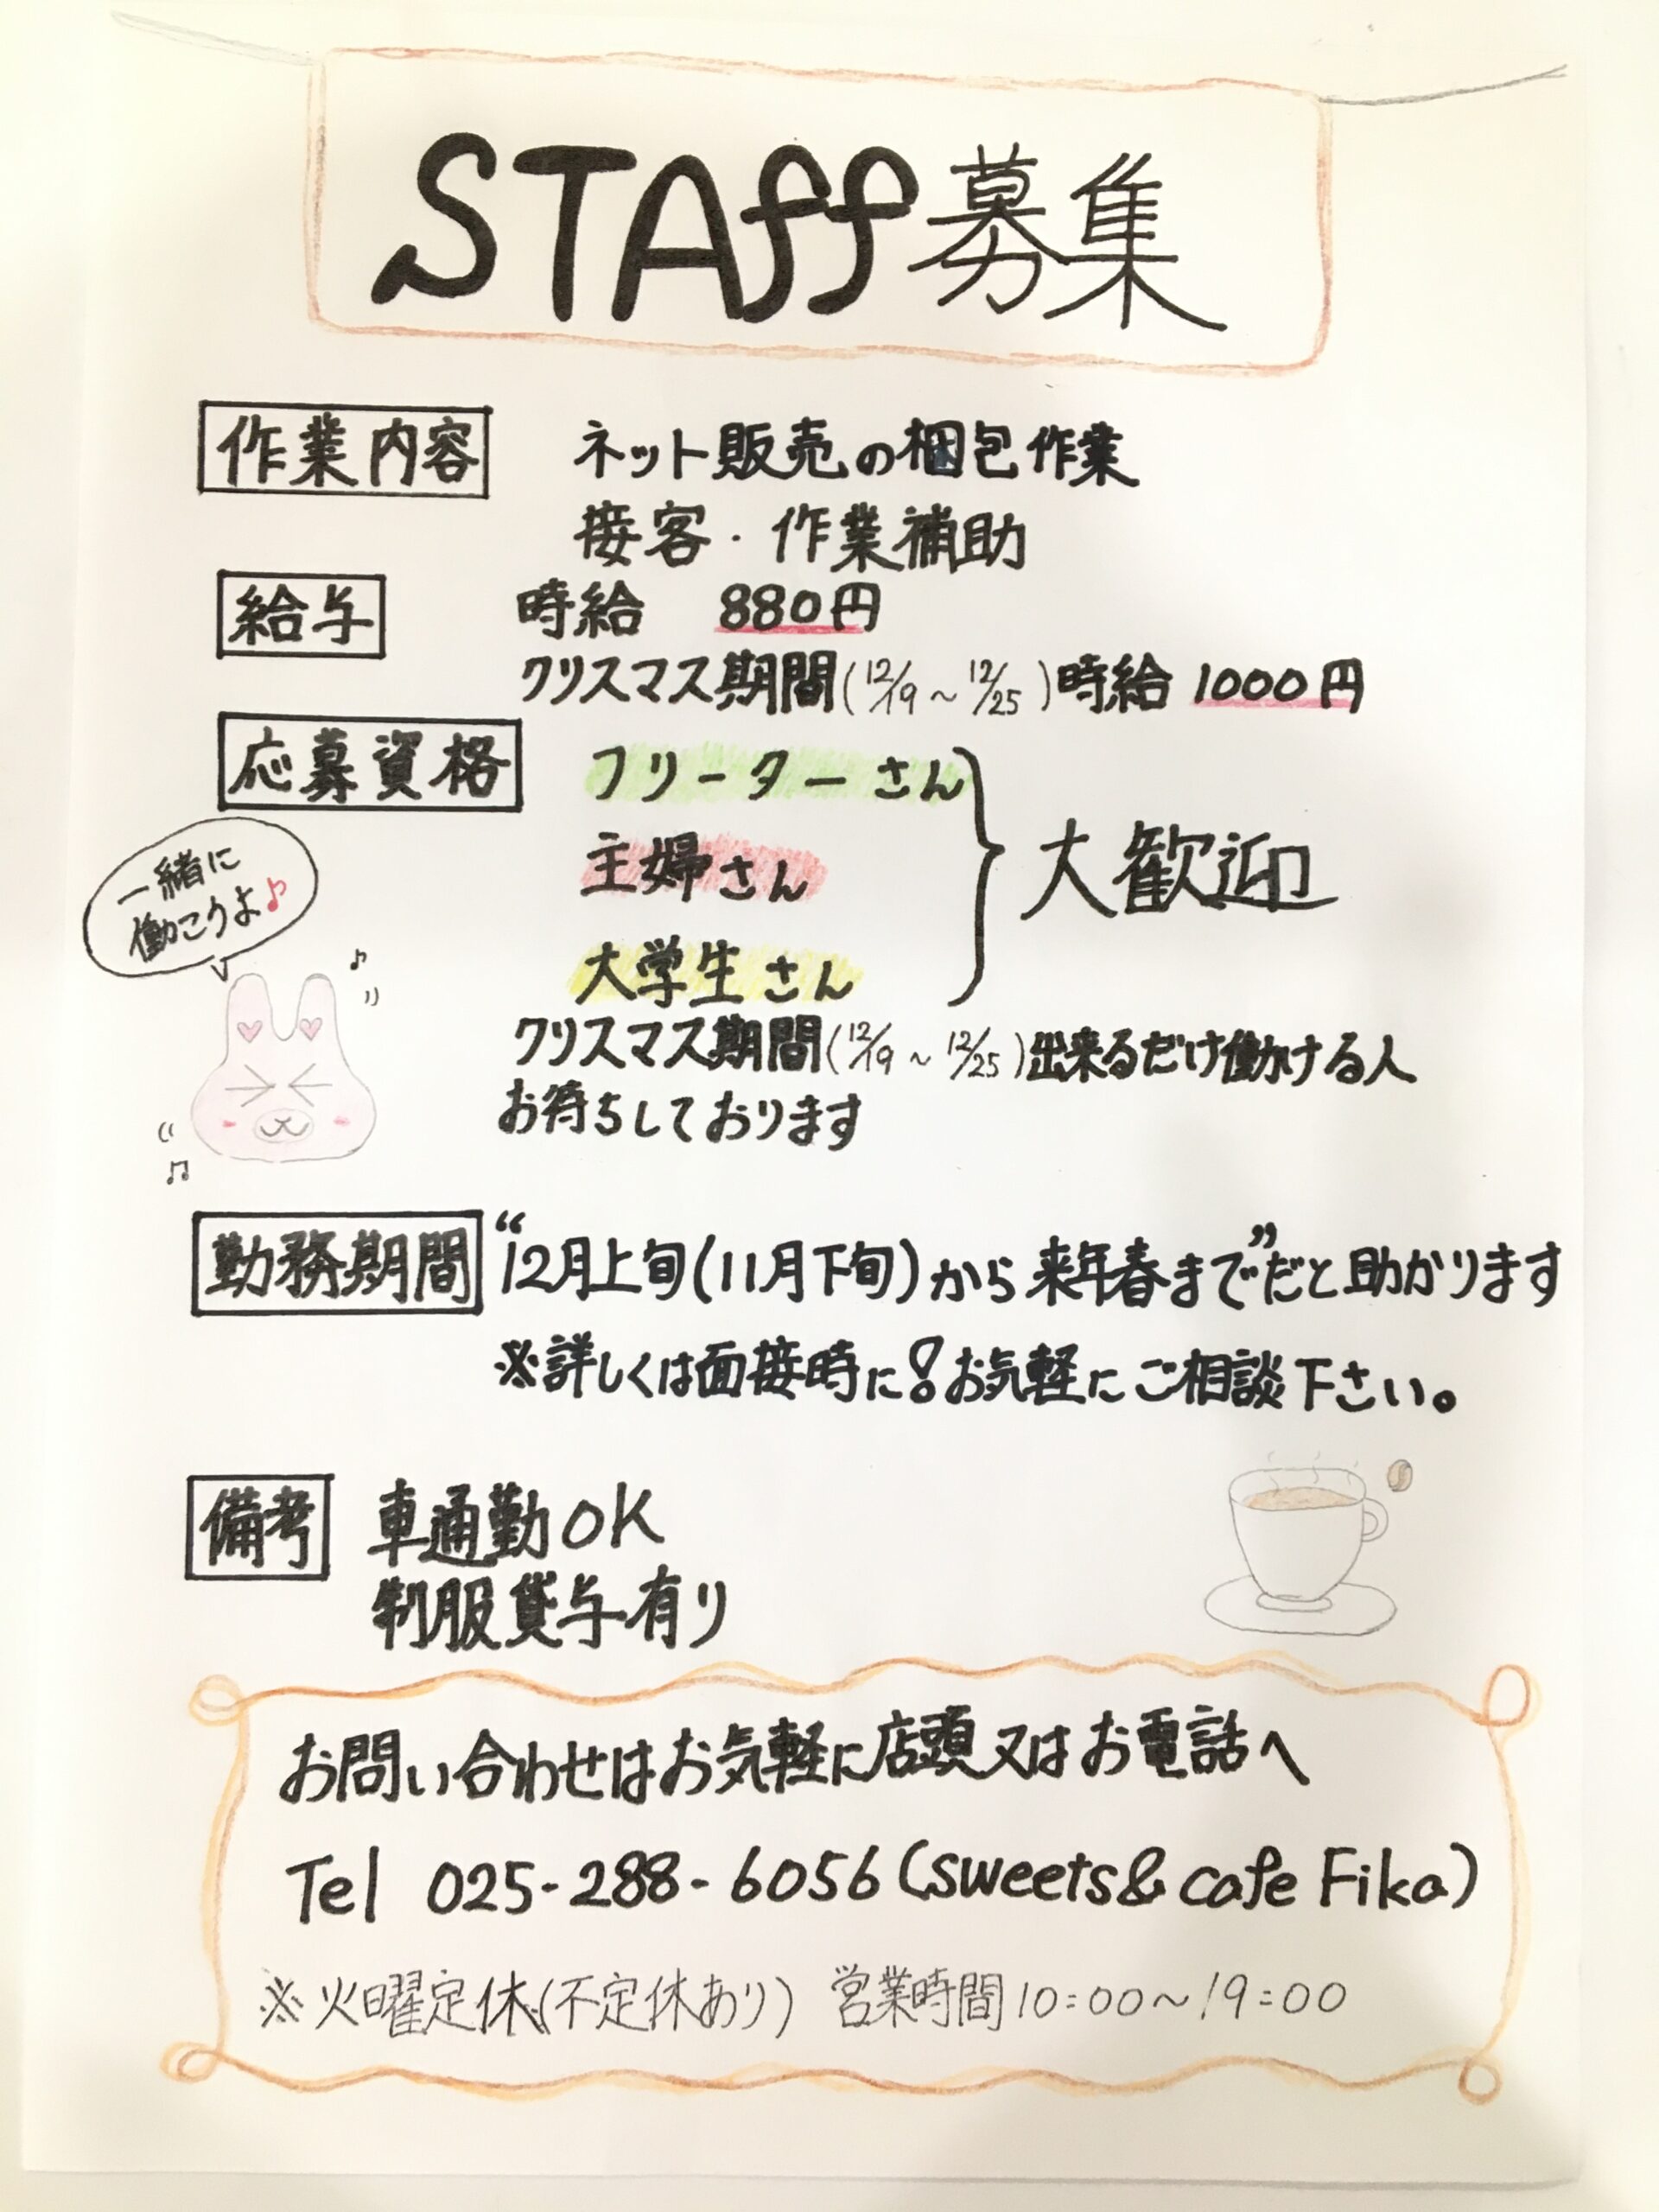 STAff募集
作業内容 ネット販売の梱包作業
接客・作業補助
給与 時給 880円
クリスマス期間(12/19～12/25)時給 1000円
応募資格 フリーターさん
主婦さん
大歓迎
大学生さん
一緒に
働こうよ♪
クリスマス期間(12/19～12/25)出来るだけ働ける人
お待ちしております
勤務期間 “12月上旬(11月下旬)から来年春まで”だと助かります
※詳しくは面接時に!お気軽にご相談下さい。
備考 車通勤OK
制服貸与有り
お問い合わせはお気軽に店頭又はお電話へ
Tel 025-288-6056(sweets&cafe Fika)
※火曜定休(不定休あり) 営業時間10:00～19:00